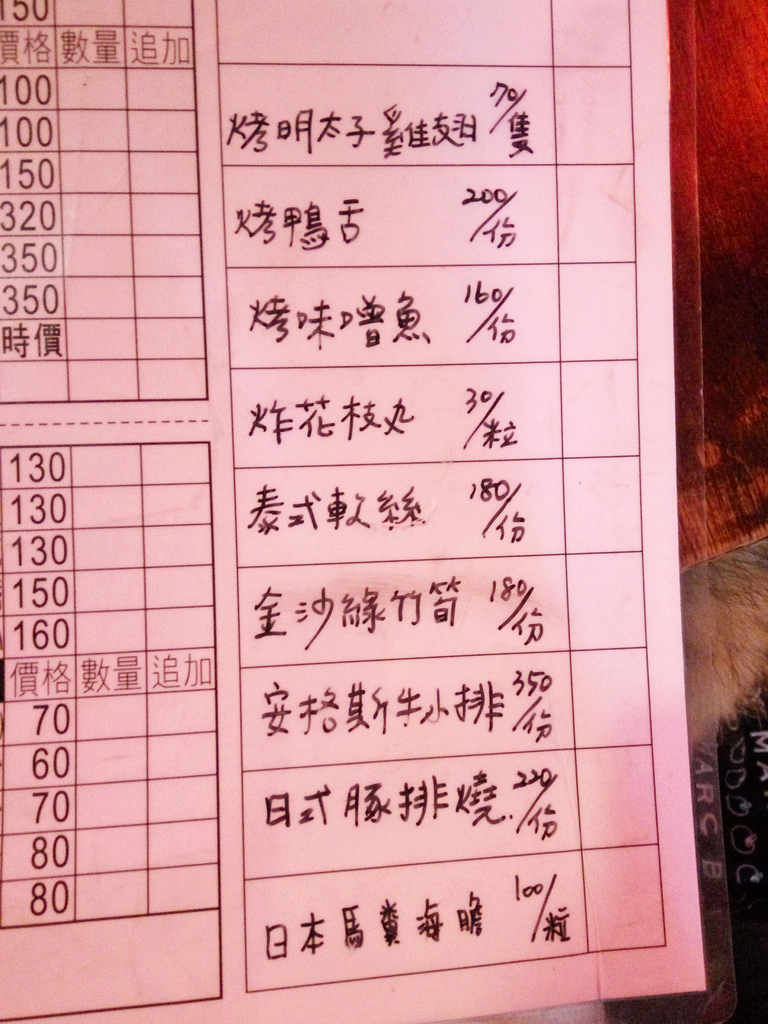 150
價格 數量 追加
100
100
150
320
350
350
時價
130
130
130
150
160
價格 數量 追加
70
60
70
80
80
烤明太子雞翅 70/隻
烤鴨舌 200/份
烤味噌魚 160/份
炸花枝丸 30/粒
泰式軟絲 180/份
金沙綠竹筍 180/份
安格斯牛小排 350/份
日式豚排燒 220/份
日本馬糞海膽 100/粒